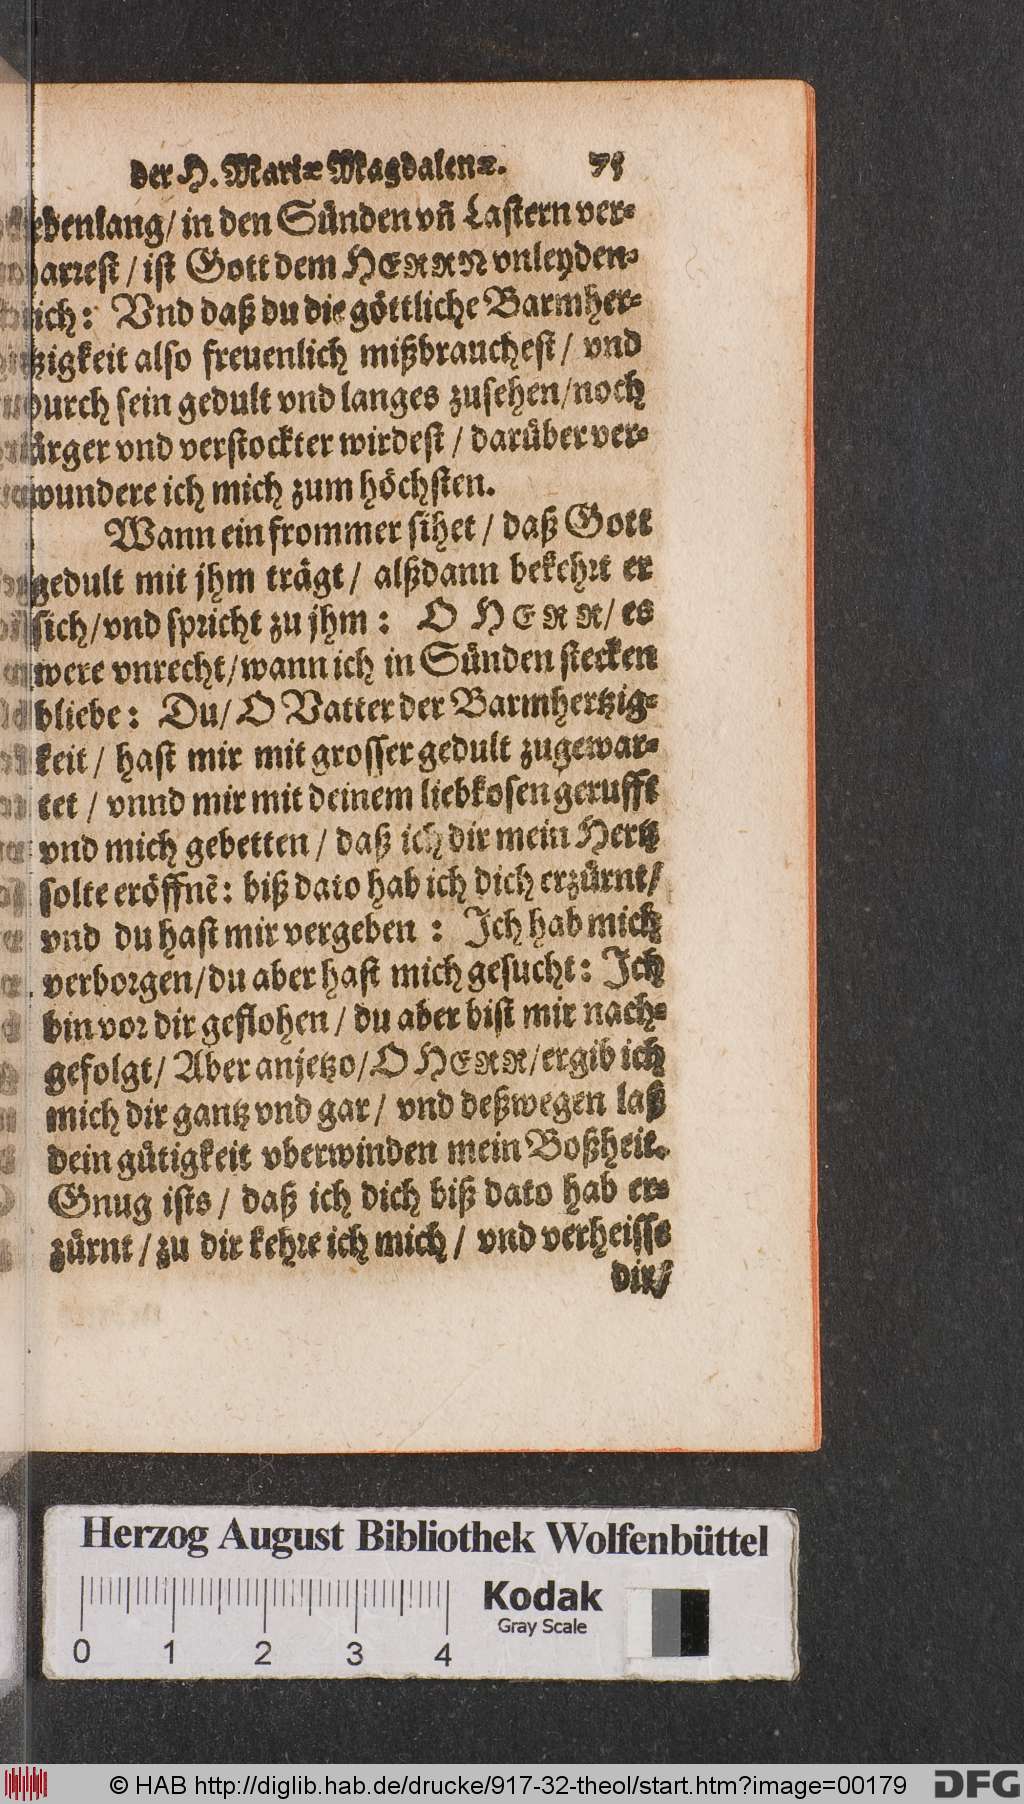 der H. Mariæ Magdalenæ. 75
lebenlang/ in den Sünden vñ Lastern ver-
harrest / ist Gott dem HERRN vnleyden-
lich: Vnd daß du die göttliche Barmher-
tzigkeit also freuenlich mißbrauchest / vnd
durch sein gedult vnd langes zusehen/noch
ärger vnd verstockter wirdest / darüber ver-
wundere ich mich zum höchsten.
Wann ein frommer sihet / daß Gott
gedult mit jhm trägt/ alßdann bekehrt er
sich/vnd spricht zu jhm: O HERR/ es
were vnrecht/wann ich in Sünden stecken
bliebe: Du/ O Vatter der Barmhertzig-
keit / hast mir mit grosser gedult zugewar-
tet / vnnd mir mit deinem liebkosen gerufft
vnd mich gebetten / daß ich dir mein Hertz
solte eröffnē: biß dato hab ich dich erzürnt/
vnd du hast mir vergeben : Ich hab mich
verborgen/du aber hast mich gesucht: Ich
bin vor dir geflohen / du aber bist mir nach-
gefolgt/ Aber anjetzo/O HERR/ergib ich
mich dir gantz vnd gar/ vnd deßwegen laß
dein gütigkeit vberwinden mein Boßheit.
Gnug ists / daß ich dich biß dato hab er-
zürnt / zu dir kehre ich mich / vnd verheisse
dir/
Herzog August Bibliothek Wolfenbüttel
Kodak
Gray Scale
0 1 2 3 4
© HAB http://diglib.hab.de/drucke/917-32-theol/start.htm?image=00179 DFG